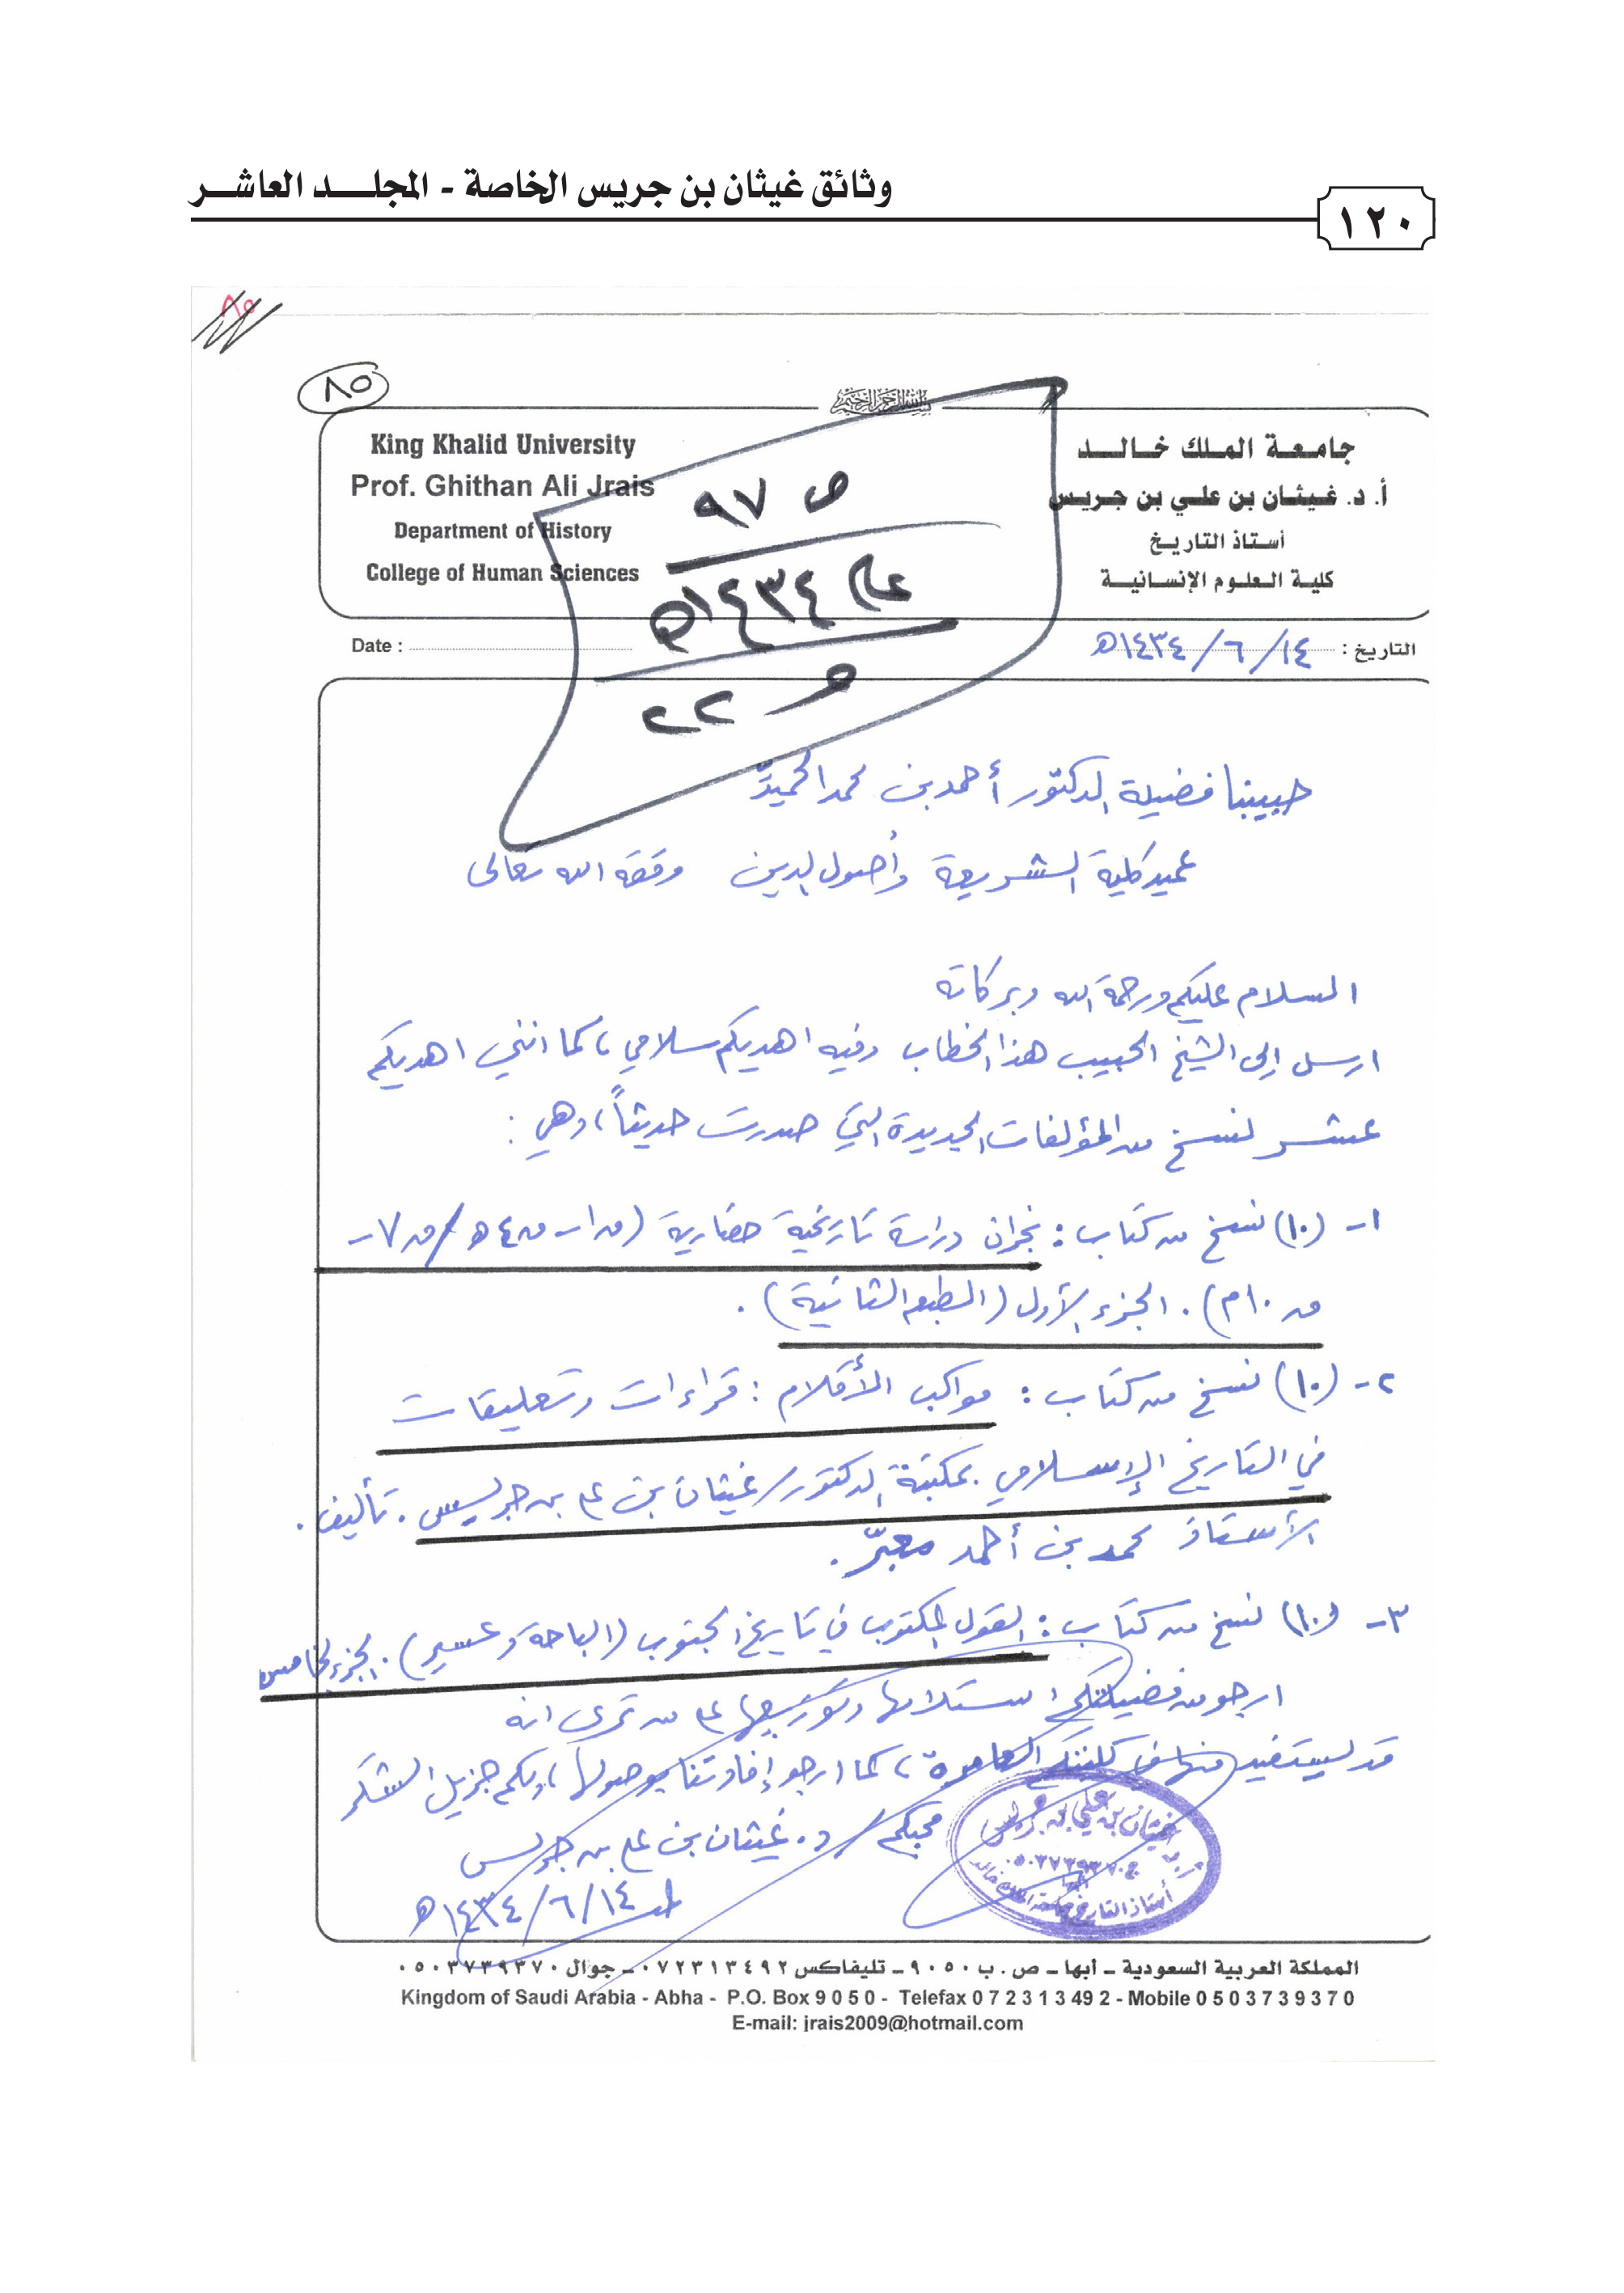 وثائق غيثان بن جريس الخاصة - المجلد العاشر
١٢٠
٨٥
٨٥
بسم الله الرحمن الرحيم
King Khalid University
Prof. Ghithan Ali Jrais
Department of History
College of Human Sciences
جامعة الملك خالد
أ. د. غيثان بن علي بن جريس
أستاذ التاريخ
كلية العلوم الإنسانية
ص ٩٧
عام ١٤٣٤هـ
٢٢
Date :
التاريخ : ١٤/٦/١٤٣٤هـ
حبيبنا فضيلة الدكتور أحمد بن محمد الحميد
عميد كلية الشريعة وأصول الدين وفقه الله تعالى
السلام عليكم ورحمة الله وبركاته
ارسل إلى الشيخ الحبيب هذا الخطاب وفيه اهديكم سلامي، كما انني اهديكم
عشر نسخ من المؤلفات الجديدة التي صدرت حديثاً، وهي :
١- (١٠) نسخ من كتاب : نجران دراسة تاريخية حضارية (ق١-ق٤هـ/ق٧-
ق١٠م). الجزء الأول (الطبعة الثانية).
٢- (١٠) نسخ من كتاب : مواكب الأقلام : قراءات وتعليقات
في التاريخ الإسلامي بمكتبة الدكتور/غيثان بن علي بن جريس. تأليف.
الأستاذ محمد بن أحمد معبّر.
٣- (١٠) نسخ من كتاب : القول المكتوب في تاريخ الجنوب (الباحة وعسير). الجزء الخامس
ارجو من فضيلتكم استلامها وتوزيعها على من ترى انه
قد يستفيد منها في كليتكم العامرة، كما ارجو إفادتنا بوصولها، ولكم جزيل الشكر
محبكم/ د. غيثان بن علي بن جريس
١٤/٦/١٤٣٤هـ
أ.د. غيثان بن علي بن جريس
ج ٠٥٠٣٧٣٩٣٧٠
أبها
أستاذ التاريخ بجامعة الملك خالد
المملكة العربية السعودية ـ أبها ـ ص . ب ٩٠٥٠ ـ تليفاكس ٠٧٢٣١٣٤٩٢ ـ جوال ٠٥٠٣٧٣٩٣٧٠
Kingdom of Saudi Arabia - Abha - P.O. Box 9 0 5 0 - Telefax 0 7 2 3 1 3 49 2 - Mobile 0 5 0 3 7 3 9 3 7 0
E-mail: jrais2009@hotmail.com